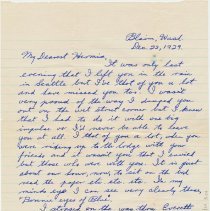 Blaine, Wash.
Dec. 23, 1929.
My Dearest Hermia,
It was only last
evening that I left you in the rain
in Seattle but I've thot of you a lot
and have missed you too. I wasn't
very proud of the way I dumped you
out on the wet street corner but I knew
that I had to do it with one big
impulse or I'd never be able to leave
you at all. I thot of you a lot when you
were riding up to the lodge with your
friends and I wasn't
but those who were with you. It is just
about our hour, now, to sit on the bed
read the paper etc. etc. etc. In my
minds eye I can see very clearly those,
"Bonnie" eyes of Blue.
I stopped on the way thru Everett